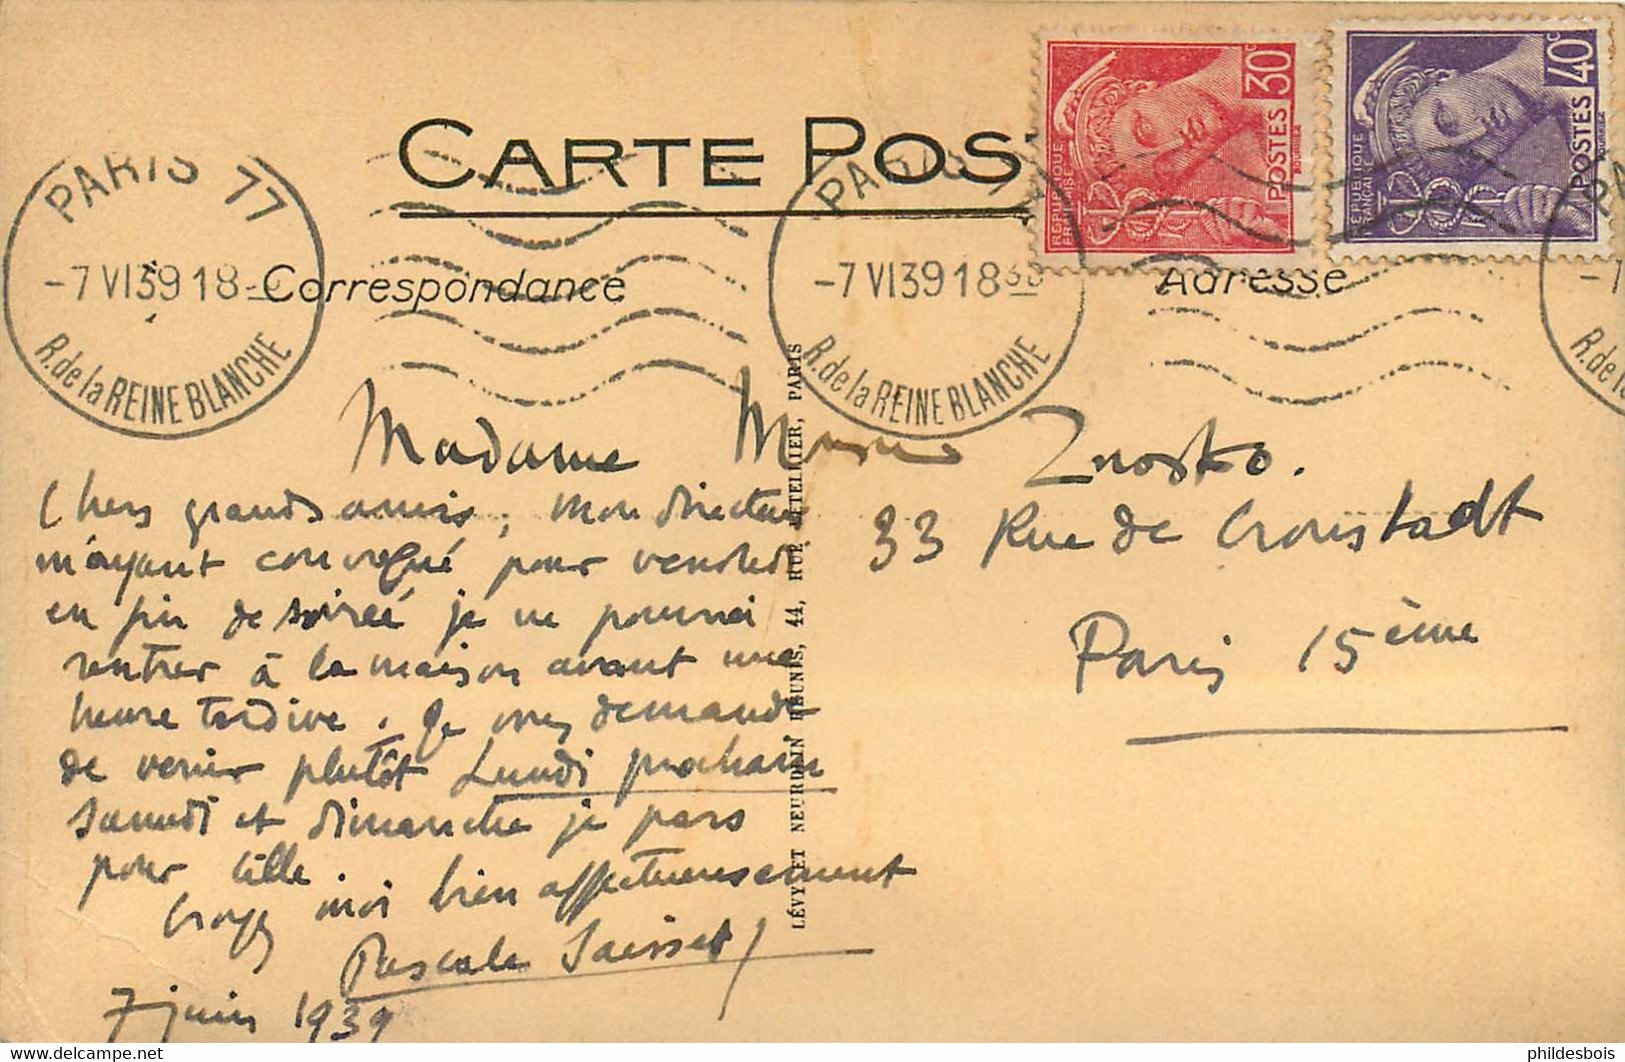 CARTE POS
PARIS 77
-7 VI39 18
R. de la REINE BLANCHE
PARIS
-7 VI39 18 30
R. de la REINE BLANCHE
30c
POSTES
RÉPUBLIQUE
FRANÇAISE
40c
POSTES
RÉPUBLIQUE
FRANÇAISE
PA
-7
R. de l
Correspondance
Adresse
Madame Monsieur Znosko.
33 Rue de Cronstadt
Paris 15ème
Chers grands amis, mon directeur
m'ayant convoqué pour vendredi
en fin de soirée je ne pourrai
rentrer à la maison avant une
heure tardive. Je vous demande
de venir plutôt Lundi prochain
samedi et dimanche je pars
pour Lille.
Croyez moi bien affectueusement
Pascale Saisset
7 juin 1939
LÉVY ET NEURDEIN RÉUNIS, 44, RUE LETELLIER, PARIS
phildesbois